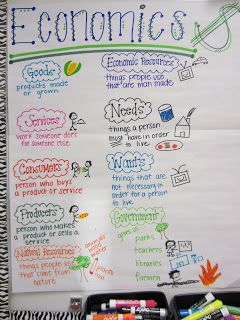 Economics
Goods
products made
or grown
Services
work someone does
for someone else
Consumers
person who buys
a product or service
Producers
person who makes
a product or sells a
service
Natural Resources
things people use
that come from
nature
animals
water
wood
Economic Resources
things people use
that are man made
Needs
things a person
must have in order
to live
Wants
things that are
not necessary in
order for a person
to live
Government
gives us
parks
teachers
libraries
firemen